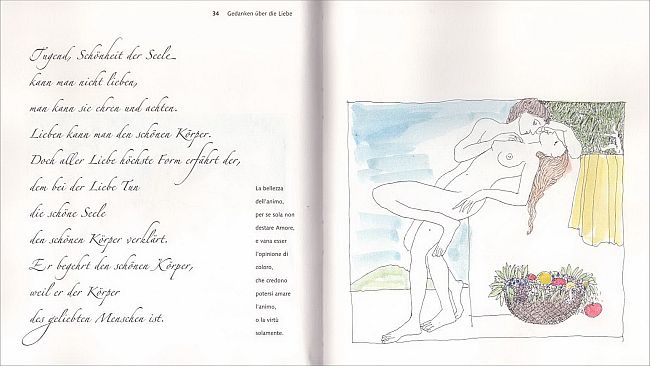 34 Gedanken über die Liebe
Tugend, Schönheit der Seele_
kann man nicht lieben,
man kann sie ehren und achten.
Lieben kann man den schönen Körper.
Doch aller Liebe höchste Form erfährt der,
dem bei der Liebe Tun
die schöne Seele
den schönen Körper verklärt.
Er begehrt den schönen Körper,
weil er der Körper
des geliebten Menschen ist.
La bellezza
dell'animo,
per se sola non
destare Amore,
e vana esser
l'opinione di
coloro,
che credono
potersi amare
l'animo,
o la virtù
solamente.